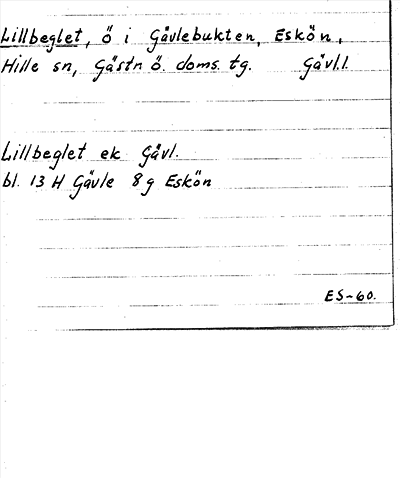 Lillbeglet, ö i Gävlebukten, Eskön,
Hille sn, Gästr ö. doms. tg. Gävl.l.
Lillbeglet ek Gävl.
bl. 13 H Gävle 8 g Eskön
ES-60.